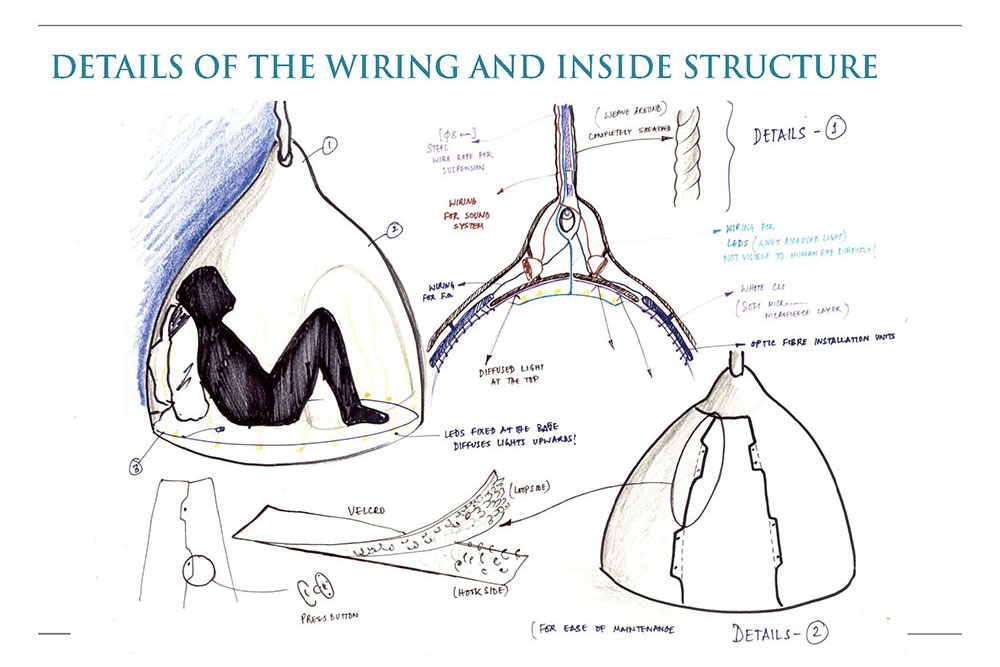 DETAILS OF THE WIRING AND INSIDE STRUCTURE
1
2
3
[Φ8 ]
STEEL
WIRE ROPE FOR
SUSPENSION
(WEAVE AROUND)
COMPLETELY SHEATHED
DETAILS - 1
WIRING
FOR SOUND
SYSTEM
WIRING FOR
LEDS (GIVES DIFFUSED LIGHT)
NOT VISIBLE TO HUMAN EYE DIRECTLY!
WIRING
FOR
WHITE
(SOFT
MICROFLEECE LAYER)
OPTIC FIBRE INSTALLATION UNITS
DIFFUSED LIGHT
AT THE TOP
LEDS FIXED AT THE BASE
DIFFUSES LIGHTS UPWARDS!
VELCRO
(LOOPSIDE)
(HOOKSIDE)
PRESS BUTTON
(FOR EASE OF MAINTENANCE
DETAILS - 2